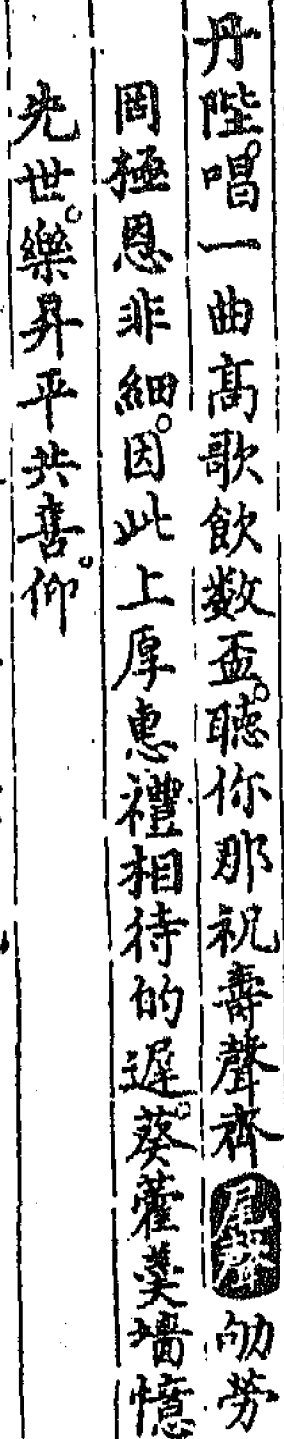 丹陛。唱一曲高歌飲数盃。聽你那祝壽聲齊尾聲劬勞
罔極恩非細。因此上厚惠禮相待的遲。葵藿羹墻憶
先世。樂昇平共喜。仰